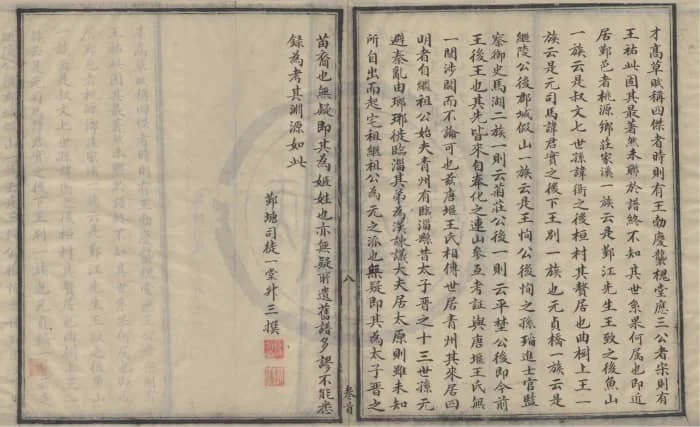 才高草賦稱四傑者時則有王勃慶襲槐堂應三公者宋則有
王祐此固其最著然未聯於譜終不知其世系果何属也即近
居鄞邑者桃源鄉莊家溪一族云是鄞江先生王致之後魚山
一族云是叔文七世孫諱衡之後桓村其贅居也曲樹上王一
族云是元司馬諱君實之後下王別一族也元貞橋一族云是
繼陵公後鄮城假山一族云是王恂公後恂之孫瑞進士官監
察御史馬湖二族一則云菊莊公後一則云平埜公後即今前
王後王也其先皆來自奉化之連山叅互考証與唐堰王氏無
一関涉闕而不論可也兹唐堰王氏相傳世居青州其來居四
明者自繼祖公始夫青州有臨淄縣昔太子晋之十三世孫元
避秦亂由瑯琊徙臨淄其弟為漢諫議大夫居太原則雖未知
所自出而起宅祖繼祖公為元之派也無疑即其為太子晋之
苗裔也無疑即其為姬姓也亦無疑前遺舊譜多謬不能悉
錄為考其淵源如此
鄞塘司徒一堂升三撰
八
卷首